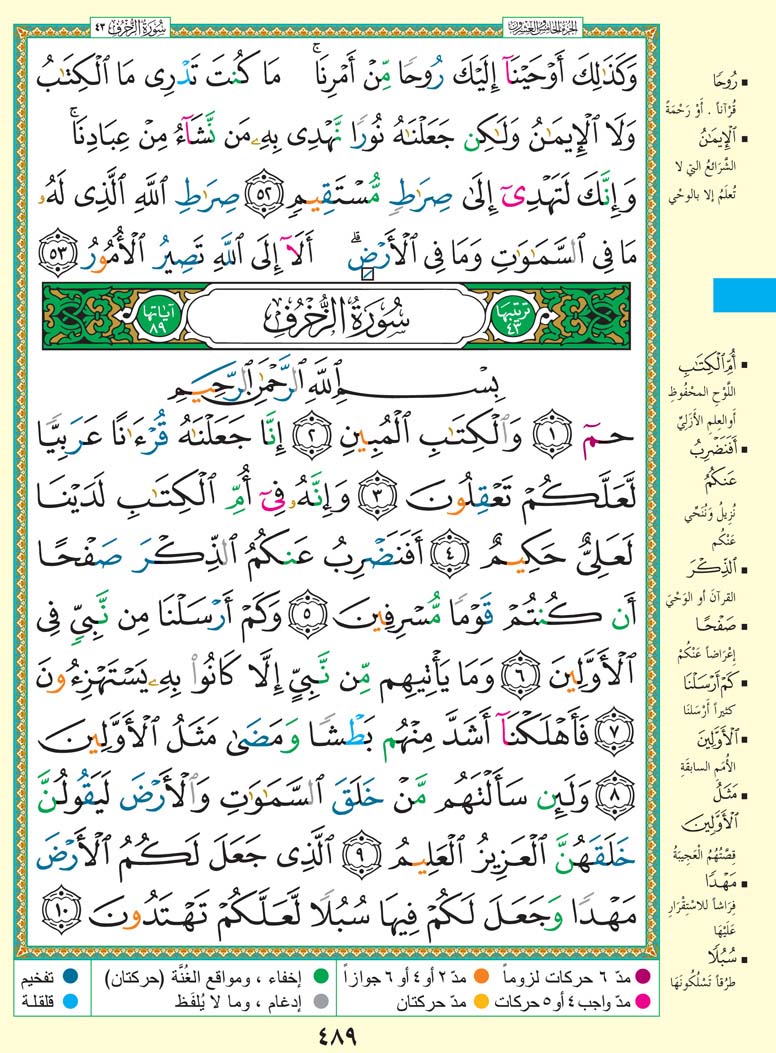 سُورَةُ الزُّخْرُفِ ٤٣
الجزء الخامس والعشرون
وَكَذَٰلِكَ أَوْحَيْنَآ إِلَيْكَ رُوحًا مِّنْ أَمْرِنَا ۚ مَا كُنتَ تَدْرِى مَا ٱلْكِتَٰبُ
وَلَا ٱلْإِيمَٰنُ وَلَٰكِن جَعَلْنَٰهُ نُورًا نَّهْدِى بِهِۦ مَن نَّشَآءُ مِنْ عِبَادِنَا ۚ
وَإِنَّكَ لَتَهْدِىٓ إِلَىٰ صِرَٰطٍ مُّسْتَقِيمٍ ٥٢ صِرَٰطِ ٱللَّهِ ٱلَّذِى لَهُۥ
مَا فِى ٱلسَّمَٰوَٰتِ وَمَا فِى ٱلْأَرْضِ ۗ أَلَآ إِلَى ٱللَّهِ تَصِيرُ ٱلْأُمُورُ ٥٣
ترتيبها ٤٣ سُورَةُ الزُّخْرُفِ آياتها ٨٩
بِسْمِ ٱللَّهِ ٱلرَّحْمَٰنِ ٱلرَّحِيمِ
حمٓ ١ وَٱلْكِتَٰبِ ٱلْمُبِينِ ٢ إِنَّا جَعَلْنَٰهُ قُرْءَٰنًا عَرَبِيًّا
لَّعَلَّكُمْ تَعْقِلُونَ ٣ وَإِنَّهُۥ فِىٓ أُمِّ ٱلْكِتَٰبِ لَدَيْنَا
لَعَلِىٌّ حَكِيمٌ ٤ أَفَنَضْرِبُ عَنكُمُ ٱلذِّكْرَ صَفْحًا
أَن كُنتُمْ قَوْمًا مُّسْرِفِينَ ٥ وَكَمْ أَرْسَلْنَا مِن نَّبِىٍّ فِى
ٱلْأَوَّلِينَ ٦ وَمَا يَأْتِيهِم مِّن نَّبِىٍّ إِلَّا كَانُوا۟ بِهِۦ يَسْتَهْزِءُونَ
٧ فَأَهْلَكْنَآ أَشَدَّ مِنْهُم بَطْشًا وَمَضَىٰ مَثَلُ ٱلْأَوَّلِينَ
٨ وَلَئِن سَأَلْتَهُم مَّنْ خَلَقَ ٱلسَّمَٰوَٰتِ وَٱلْأَرْضَ لَيَقُولُنَّ
خَلَقَهُنَّ ٱلْعَزِيزُ ٱلْعَلِيمُ ٩ ٱلَّذِى جَعَلَ لَكُمُ ٱلْأَرْضَ
مَهْدًا وَجَعَلَ لَكُمْ فِيهَا سُبُلًا لَّعَلَّكُمْ تَهْتَدُونَ ١٠
رُوحًا
قُرْآناً . أَوْ رَحْمَةً
ٱلْإِيمَٰنُ
الشَّرَائعُ التي لا
تُعلَمُ إلا بالوحْي
أُمِّ ٱلْكِتَٰبِ
اللَّوْحِ المحْفُوظ
أو العِلمِ الأَزَلِيِّ
أَفَنَضْرِبُ
عَنكُمُ
نُزِيلُ وَنُنَحِّي
عَنْكُم
ٱلذِّكْرَ
القرآنَ أو الوَحْيَ
صَفْحًا
إِعْرَاضاً عَنْكُمْ
كَمْ أَرْسَلْنَا
كثيراً أَرْسَلنَا
ٱلْأَوَّلِينَ
الأُمَمِ السابقةِ
مَثَلُ
ٱلْأَوَّلِينَ
قِصَّتُهُمُ العَجِيبَةُ
مَهْدًا
فِرَاشاً للاسْتِقْرَارِ
عَلَيْهَا
سُبُلًا
طرُقاً تَسْلُكُونَهَا
مدّ ٦ حركات لزوماً
مدّ ٢ أو ٤ أو ٦ جوازاً
إخفاء ، ومواقع الغُنَّة (حركتان)
تفخيم
مدّ واجب ٤ أو ٥ حركات
مدّ حركتان
إدغام ، وما لا يُلفَظ
قلقلة
٤٨٩